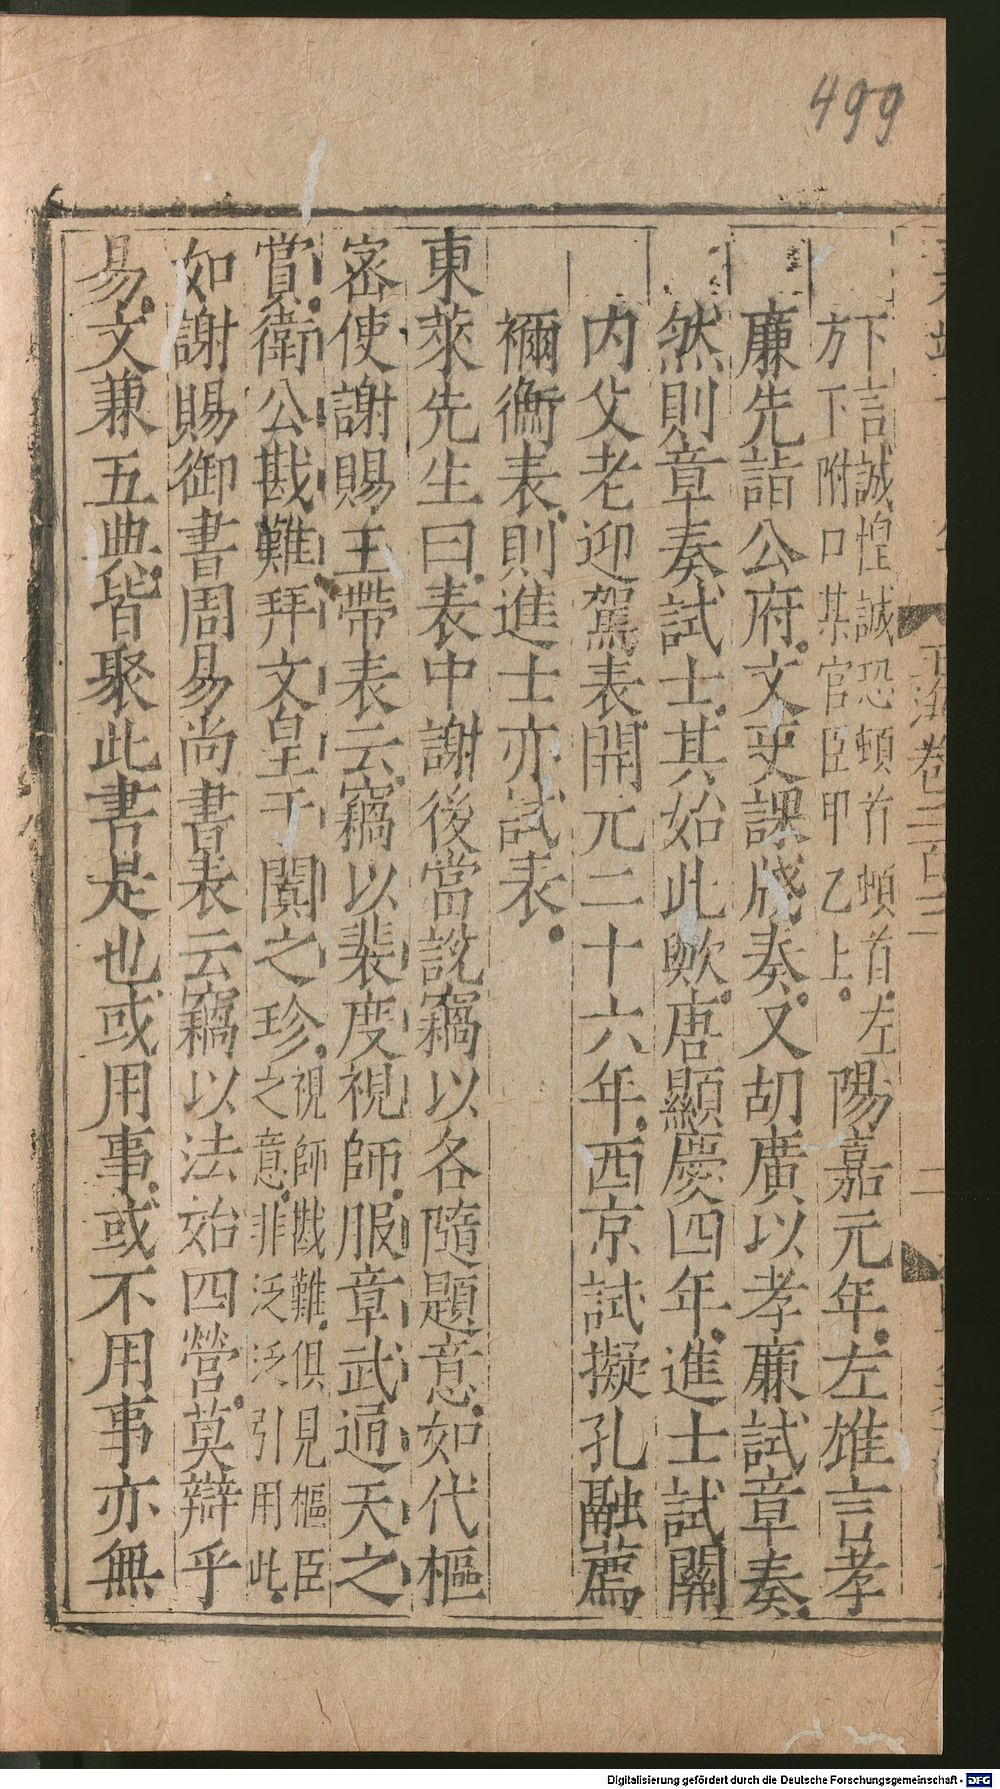 499
玉海卷二百三
二
下言誠惶誠恐頓首頓首左
方下附口某官臣甲乙上
陽嘉元年左雄言孝
廉先詣公府文吏課牋奏又胡廣以孝廉試章奏
然則章奏試士其始此歟唐顯慶四年進士試關
内父老迎駕表開元二十六年西京試擬孔融薦
禰衡表則進士亦試表
東萊先生曰表中謝後當說竊以各隨題意如代樞
密使謝賜玉帶表云竊以裴度視師服章武通天之
賞衛公戡難拜文皇于闐之珍
視師戡難俱見樞臣
之意非泛泛引用此
如謝賜御書周易尚書表云竊以法始四營莫辯乎
易文兼五典皆聚此書是也或用事或不用事亦無
Digitalisierung gefördert durch die Deutsche Forschungsgemeinschaft - DFG